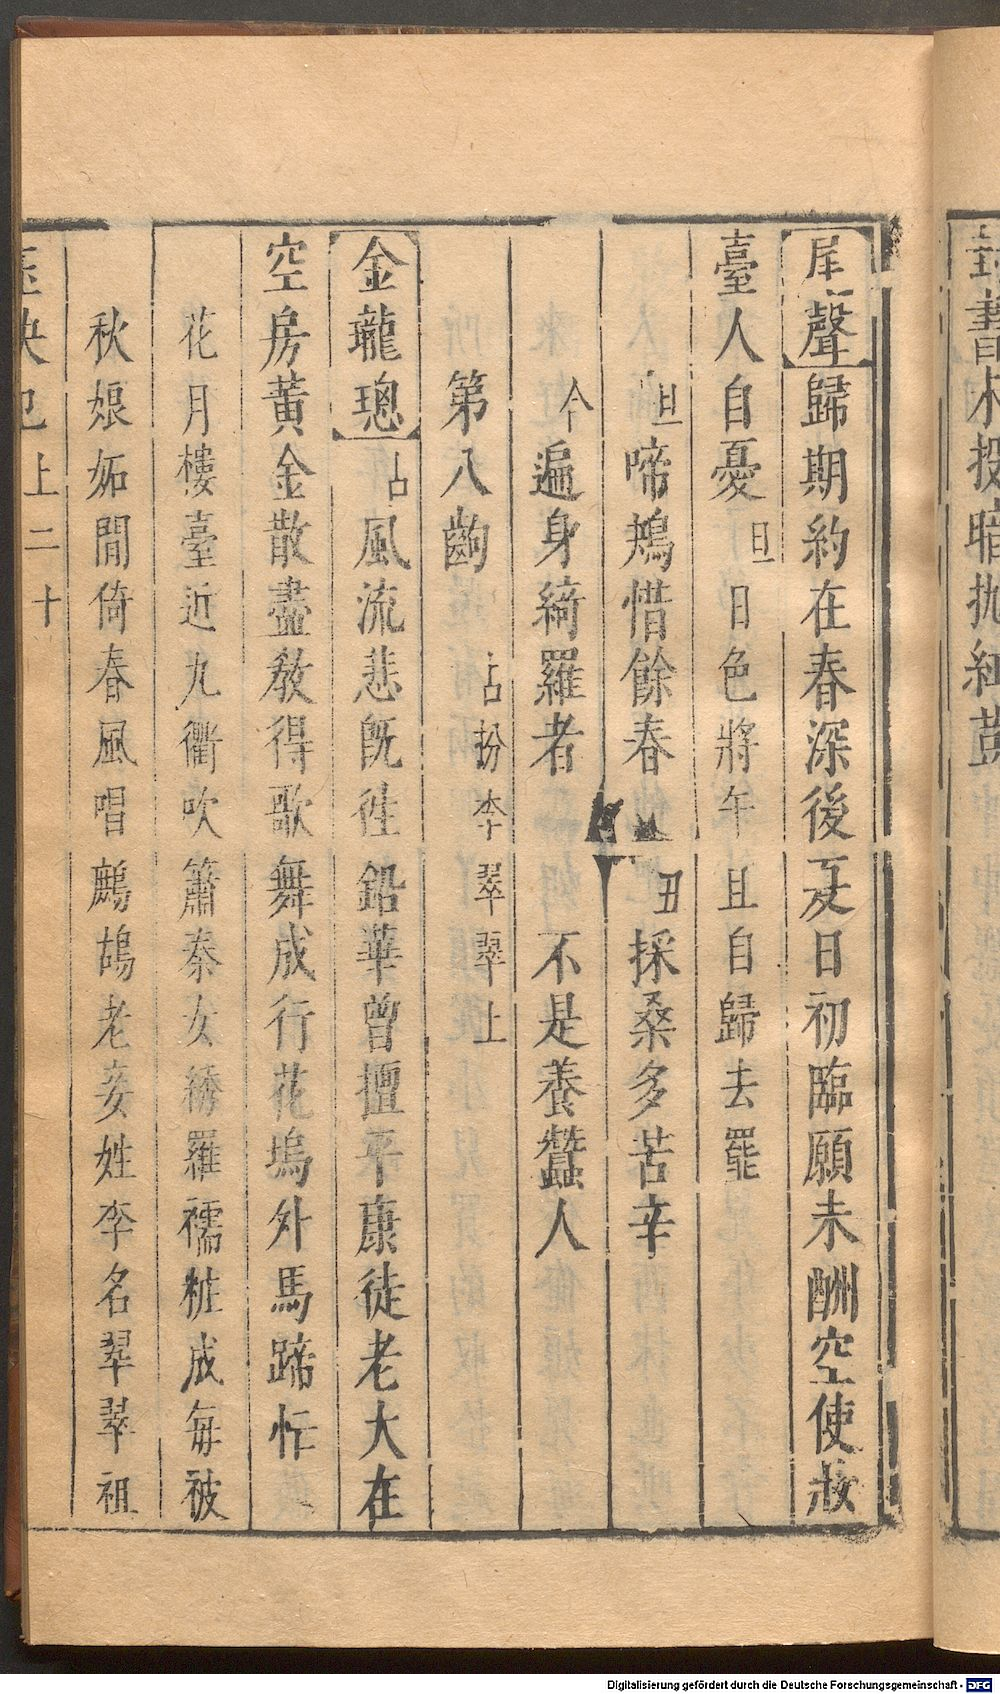 尾聲歸期約在春深後夏日初臨願未酬空使妝
臺人自憂旦日色將午且自歸去罷
旦啼鴂惜餘春丑採桑多苦辛
仐遍身綺羅者不是養蠶人
第八齣占扮李翠翠上
金瓏璁占風流悲旣徃鉛華曾擅平康徒老大在
空房黃金散盡敎得歌舞成行花塢外馬蹄忙
花月樓臺近九衢吹簫秦女綉羅襦粧成每被
秋娘妬閒倚春風唱鷓鴣老妾姓李名翠翠祖
玉玦記上二十
書木投暗抛紅荳
Digitalisierung gefördert durch die Deutsche Forschungsgemeinschaft - DFG